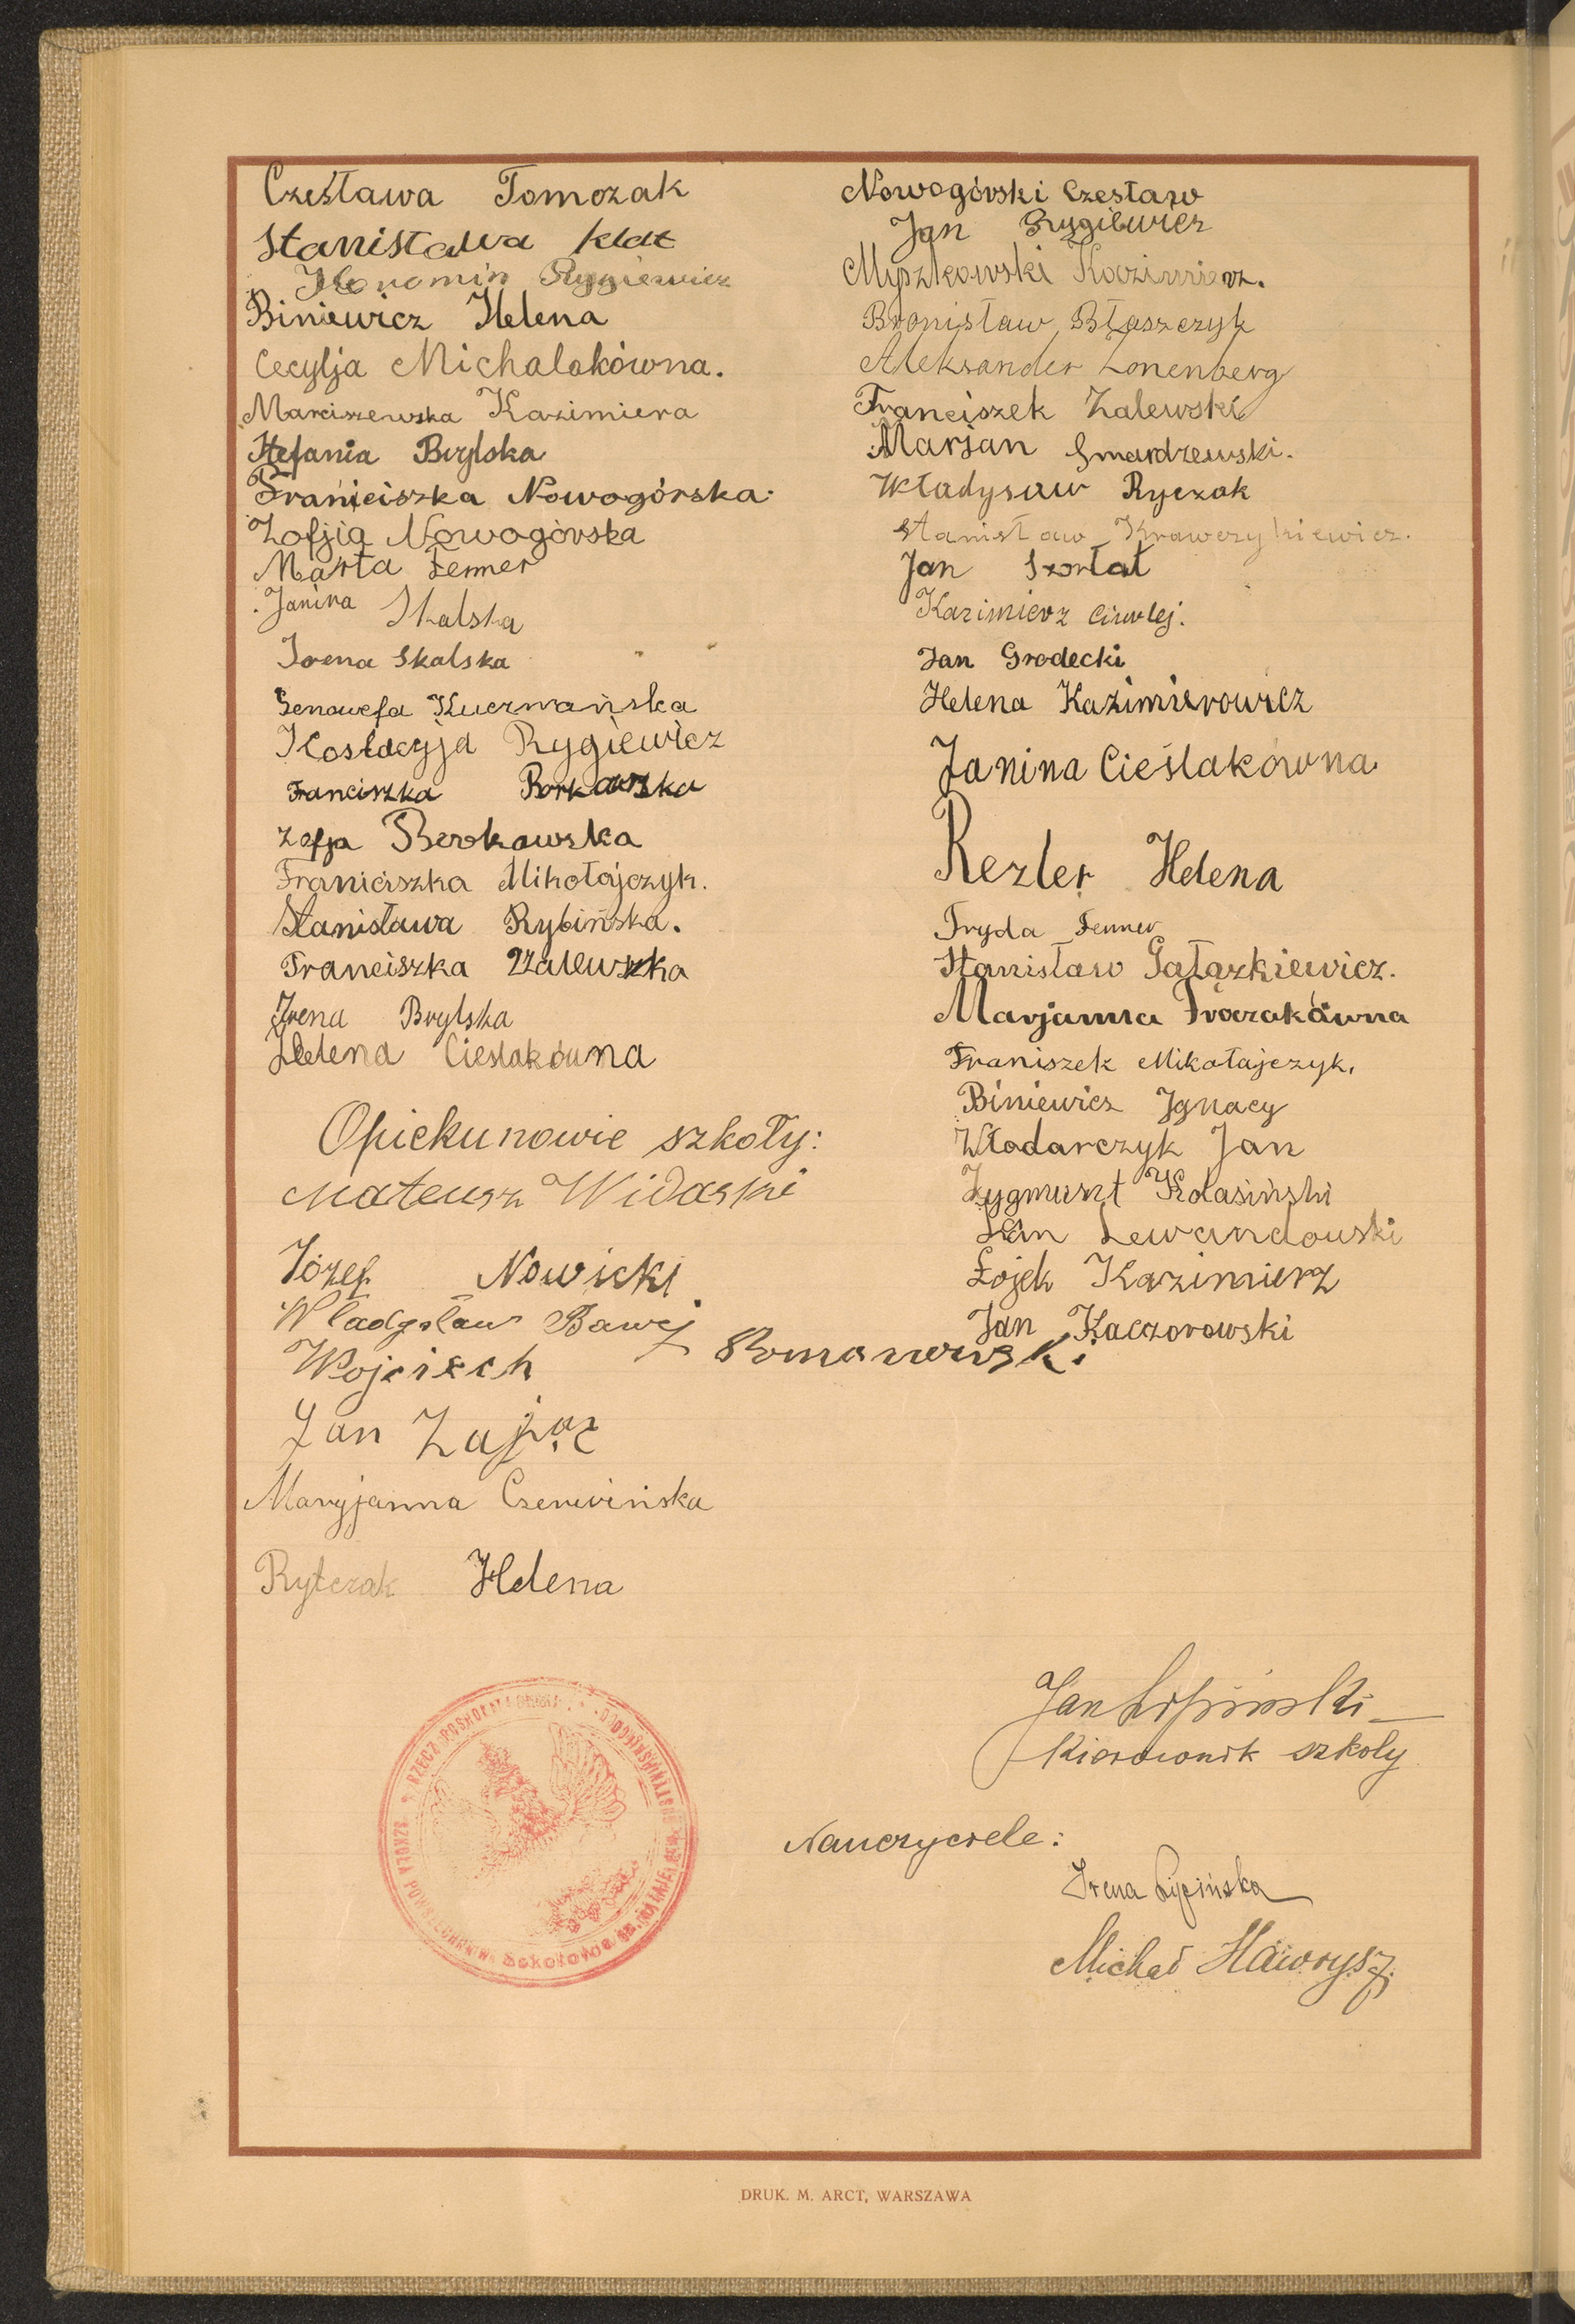 Czesława Tomczak
Stanisława Klat
Rygiewicz
Biniewicz Helena
Cecylja Michalakówna.
Marciszewska Kazimiera
Stefania Brylska
Franiciszka Nowogórska.
Zofjia Nowogórska
Marta Fenner
Janina Skalska
Irena Skalska
Genowefa Kucrmańska
Rygiewicz
Franciszka Borkowska
Zofja Berokowska
Franiciszka Mikołajczyk.
Stanisława Rybińska.
Franciszka Zalewska
Irena Brylska
Helena Cieslakówna
Opiekunowie szkoły:
Mateusz Widaski
Józef Nowicki
Władysław Bawej
Wojciech Romanowski
Jan Zając
Maryjanna Czerwińska
Rytczak Helena
Nowogórski Czesław
Jan Rygiewicz
Myszkowski Kazimierz.
Bronisław Błaszczyk
Aleksander Lonenberg
Franciszek Zalewski
Marjan Gmardzewski.
Władysaw Ryczak
Stanisław Krawczykiewicz.
Jan Szortat
Kazimierz Ciurlej.
Jan Grodecki
Helena Kazimierowicz
Janina Cieślakówna
Rezler Helena
Fryda Fenner
Stanisław Gałązkiewicz.
Marjanna
Franiszek Mikołajczyk.
Biniewicz Ignacy
Włodarczyk Jan
Zygmunt Kolasiński
Jan Lewandowski
Łojek Kazimierz
Jan Kaczorowski
Jan Lipiński
Kierownik szkoły
Nauczyciele:
Irena Lipińska
Michał Hawrysz.
DRUK. M. ARCT, WARSZAWA